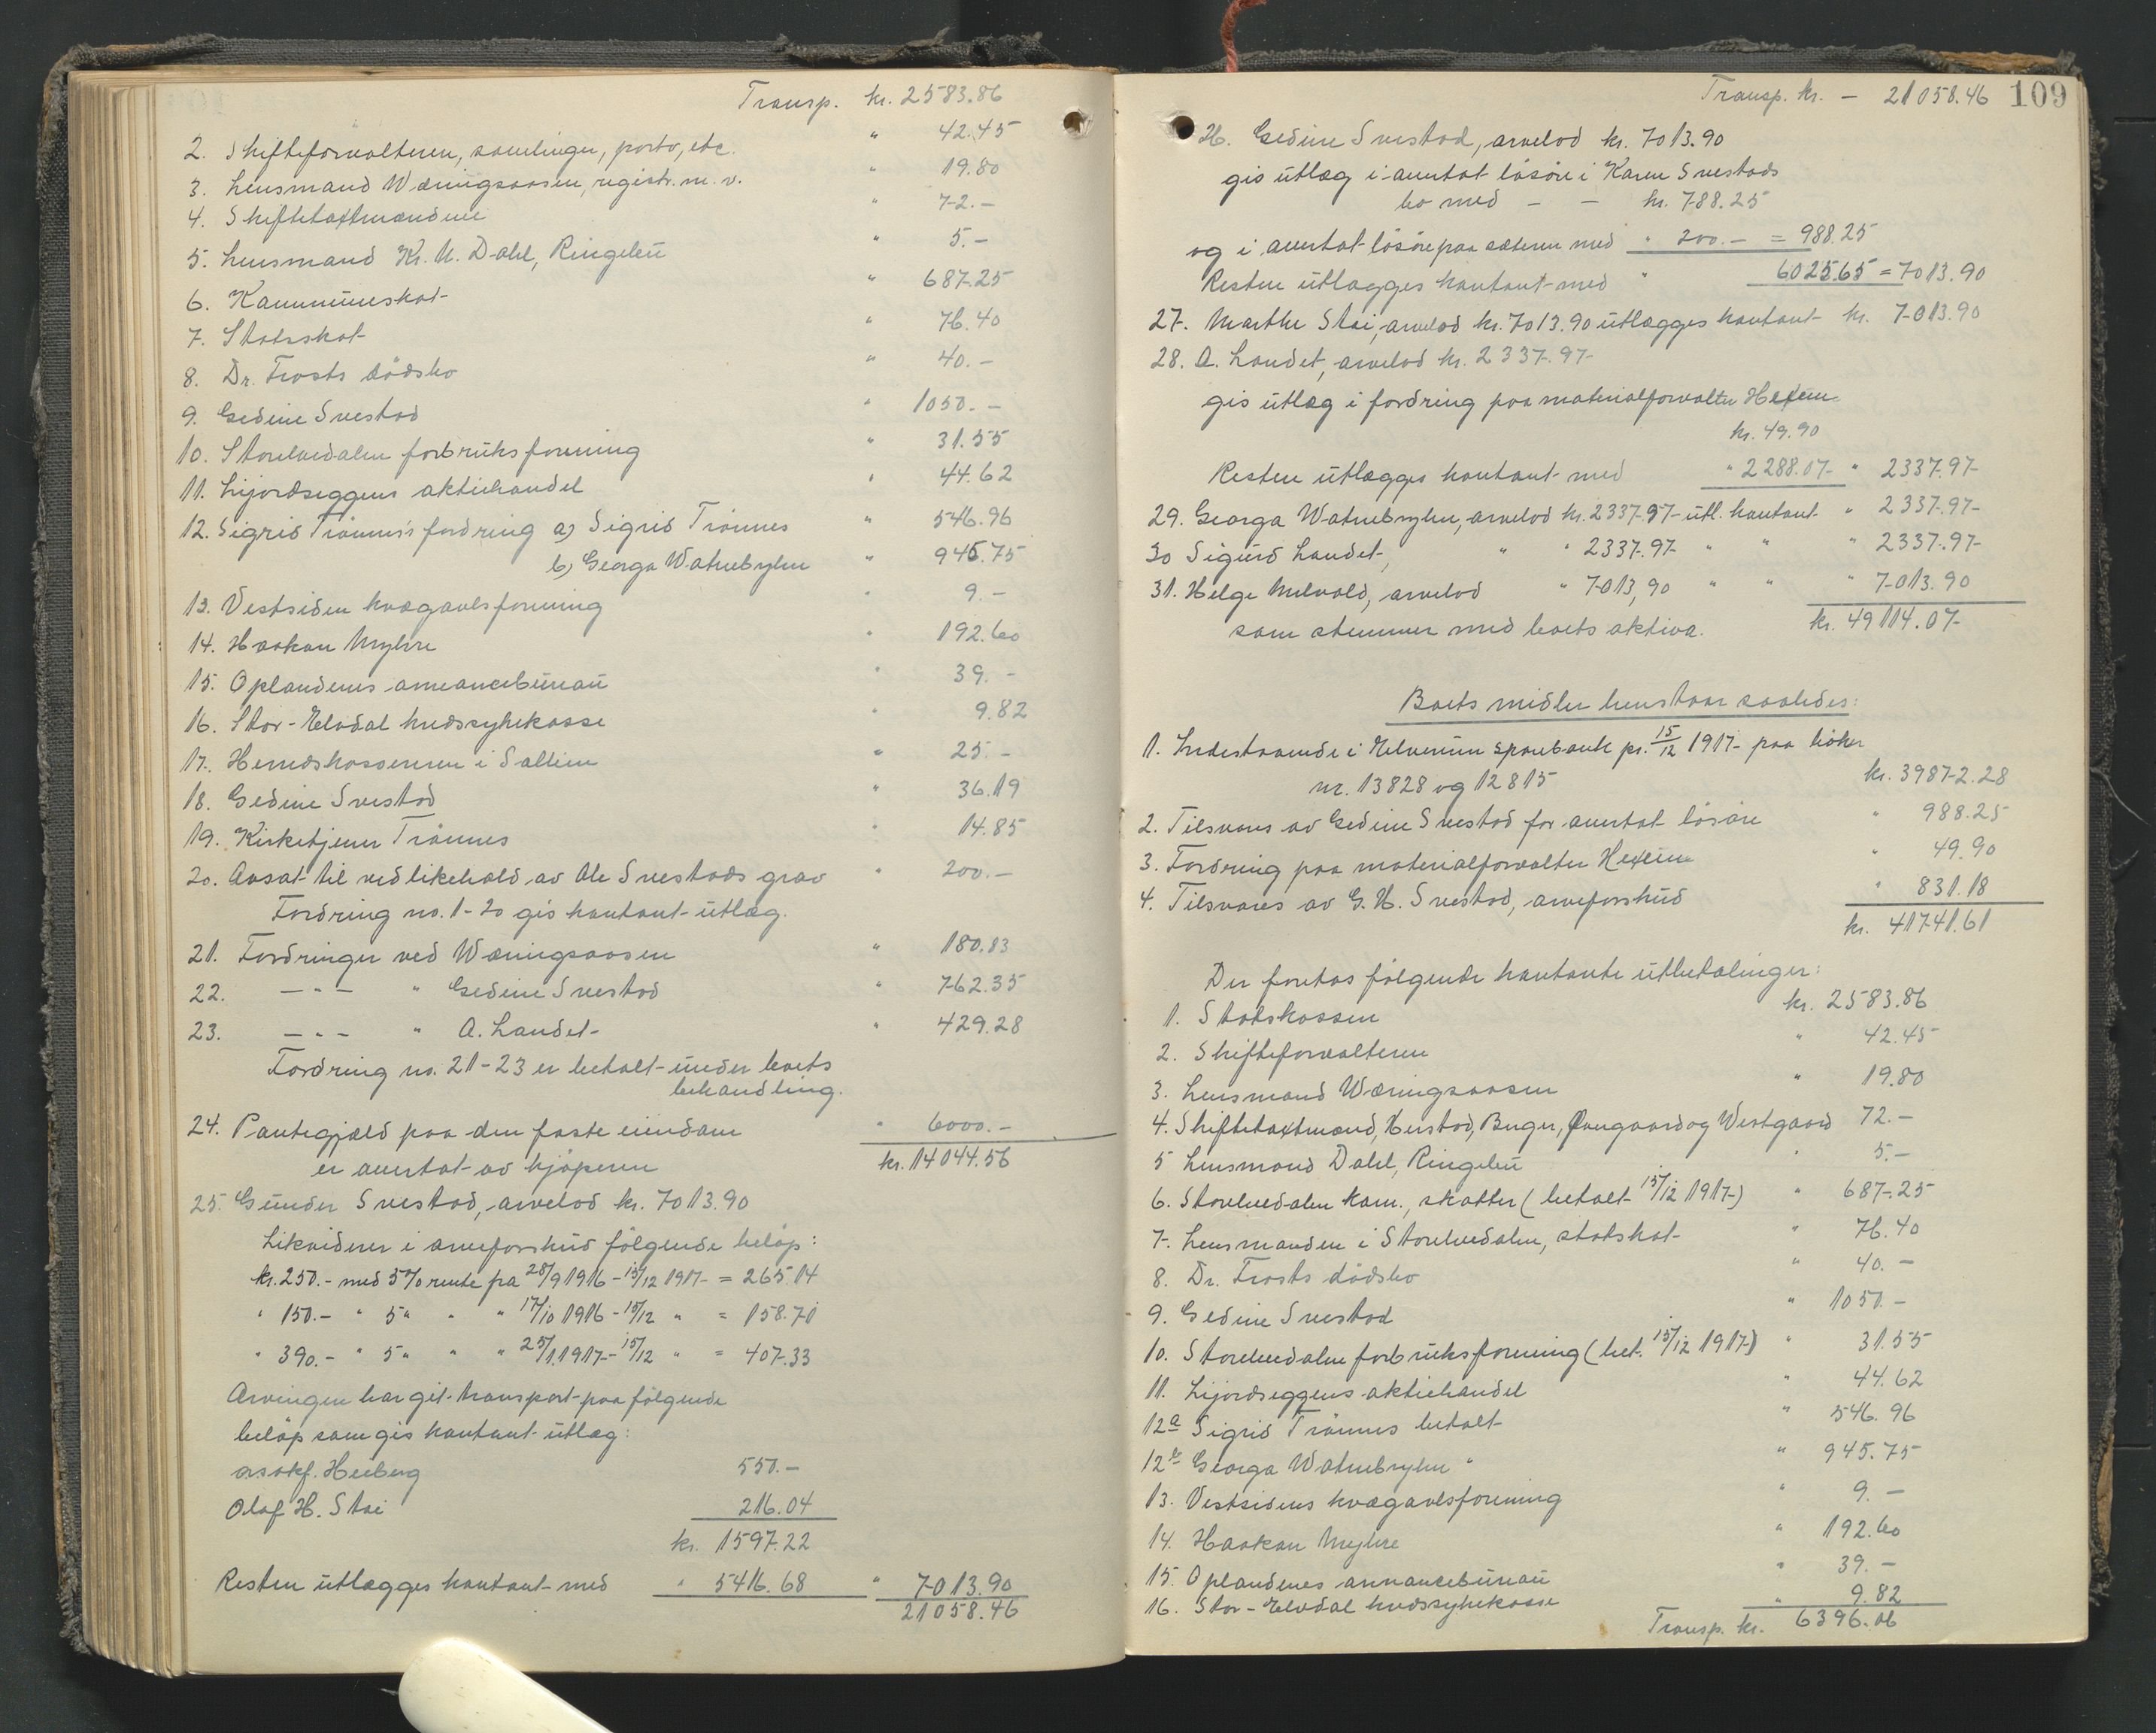 Transp. kr. 2583.86
2. Skifteforvalteren, samlinger, porto, etc. " 42.45
3. Lensmand Wæringsaasen, registr. m. v. " 19.80
4. Skiftetaxtmændene " 72.-
5. Lensmand Kr. N. Dahl, Ringebu " 5.-
6. Kommuneskat " 687.25
7. Statsskat " 76.40
8. Dr. Frosts dödsbo " 40.-
9. Gedine Svestad " 1050.-
10. Storelvedalen forbruksforening " 31.55
11. Lijordseggens aktiehandel " 44.62
12. Sigrid Trönnes's fordring a) Sigrid Trönnes " 546.96
b) Georga Watnebryn " 945.75
13. Vestsiden kvægavlsforening " 9.-
14. Haakon Myhre " 192.60
15. Oplandenes annoncebureau " 39.-
16. Stor-Elvdal kredssykekasse " 9.82
17. Herredskassereren i Sollien " 25.-
18. Gedine Svestad " 36.19
19. Kirketjener Trönnes " 14.85
20. Avsat til vedlikehold av Ole Svestads grav " 200.-
Fordring no. 1-20 gis kontant utlæg.
21. Fordringer ved Wæringsaasen " 180.83
22. - " - " Gedine Svestad " 762.35
23. - " - " A. Landet " 429.28
Fordring no. 21-23 er betalt under boets
behandling.
24. Pantegjæld paa den faste eiendom " 6000.-
er avertat av kjöperen kr. 14044.56
25. Gunder Svestad, arvelod kr. 7013.90
Likviderer i arveforskud fölgende belöp:
kr. 250.- med 5% rente fra 28/9 1916 - 15/12 1917 = 265.14
" 150.- " 5 " " " 17/10 1916 - 15/12 " = 158.71
" 390.- " 5 " " " 25/1 1917 - 15/12 " = 407.33
Arvingen har git transport paa fölgende
belöp som gis kontant utlæg:
o.r.sakf. Heiberg 550.-
Olaf H. Stai 216.04
kr. 1597.22
Resten utlægges kontant med " 5416.68 " 7013.90
21058.46
109
Transp. kr. - 21058.46
26. Gedine Svestad, arvelod kr. 7013.90
gis utlæg i avertat lösöre i Karen Svestads
bo med - - kr. 788.25
og i avertat lösöre paa sæteren med " 200.- = 988.25
Resten utlægges kontant med " 6025.65 = 7013.90
27. Marthe Stai, arvelod kr. 7013.90 utlægges kontant kr. 7013.90
28. A. Landet, arvelod kr. 2337.97
gis utlæg i fordring paa materialforvalter Hexem
kr. 49.90
Resten utlægges kontant med " 2288.07 " 2337.97
29. Georga Watnebryn, arvelod kr. 2337.97 utl. kontant " 2337.97
30 Sigurd Landet, " " 2337.97 " " " 2337.97
31. Helge Melvold, arvelod " 7013,90 " " " 7013.90
som stemmer med boets aktiva. kr. 49114.07
Boets midler henstaar saaledes:
1. Indestaaende i Elverum sparebank pr. 15/12 1917 paa böker
nr. 13828 og 12815 kr. 39872.28
2. Tilsvares av Gedine Svestad for avertat lösöre " 988.25
3. Fordring paa materialforvalter Hexem " 49.90
4. Tilsvares av G. H. Svestad, arveforskud " 831.18
kr. 41741.61
Der foretas fölgende kontante utbetalinger:
1. Statskassen kr. 2583.86
2. Skifteforvalteren " 42.45
3. Lensmand Wæringsaasen " 19.80
4. Skiftetaxtmænd, Herstad, Berger, Øvergaard og Westgaard 72.-
5 Lensmand Dahl, Ringebu " 5.-
6. Storelvedalen kom., skatter (betalt 15/12 1917) " 687.25
7. Lensmanden i Storelvedalen, statskat " 76.40
8. Dr. Frosts dödsbo " 40.-
9. Gedine Svestad " 1050.-
10. Storelvedalen forbruksforening (bet. 15/12 1917) " 31.55
11. Lijordseggens aktiehandel " 44.62
12a Sigrid Trönnes betalt " 546.96
12b Georga Watnebryn " " 945.75
13. Vestsidens kvægavlsforening " 9.-
14. Haakon Myhre " 192.60
15. Oplandenes annoncebureau " 39.-
16. Stor-Elvdal kredssykekasse " 9.82
Transp. kr. 6396.06